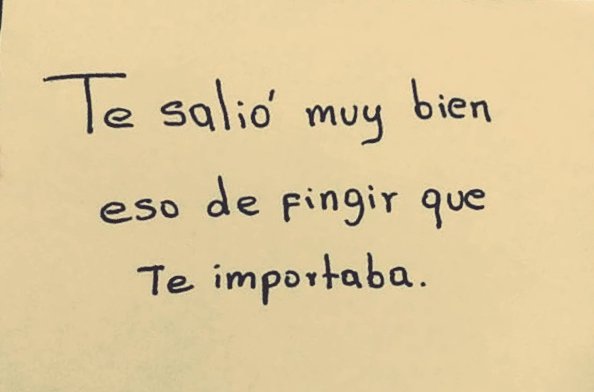 Te salió muy bien
eso de fingir que
Te importaba.